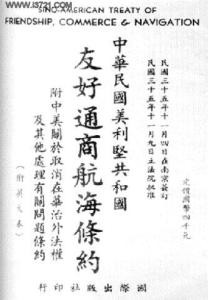 www.i3721.com
SINO-AMERICAN TREATY OF
FRIENDSHIP, COMMERCE & NAVIGATION
民國三十五年十一月四日在南京簽訂
民國三十五年十一月九日立法院批准
定價國幣四千元
中華民國美利堅共和國
友好通商航海條約
附中美關於取消在華治外法權
及其他處理有關問題條約
（附英文本）
國際出版社印行